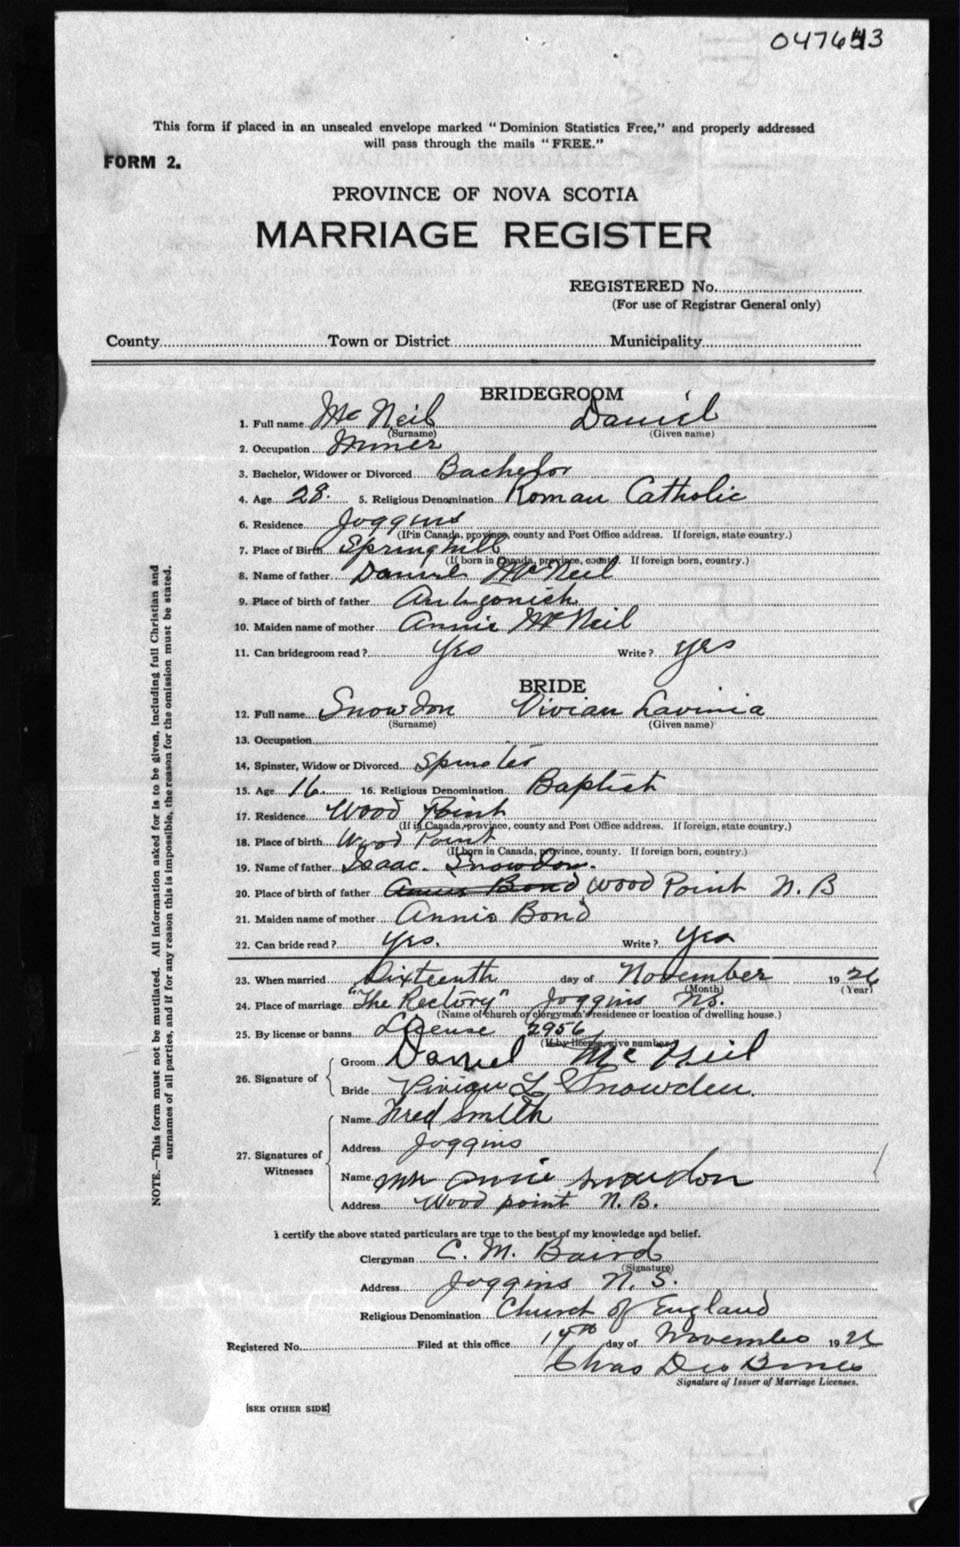 This form if placed in an unsealed envelope marked "Dominion Statistics Free," and properly addressed
will pass through the mails "FREE."
FORM 2.
PROVINCE OF NOVA SCOTIA
MARRIAGE REGISTER
REGISTERED No.
(For use of Registrar General only)
County Town or District Municipality
BRIDEGROOM
1. Full name McNeil Daniel
(Surname) (Given name)
2. Occupation Miner
3. Bachelor, Widower or Divorced Bachelor
4. Age 28. 5. Religious Denomination Roman Catholic
6. Residence Joggins
(If in Canada, province, county and Post Office address. If foreign, state country.)
7. Place of Birth Springhill
(If born in Canada, province, county. If foreign born, county.)
8. Name of father Daniel McNeil
9. Place of birth of father Antigonish
10. Maiden name of mother Annie McNeil
11. Can bridegroom read? Yes Write? yes
BRIDE
12. Full name Snowdon Vivian Lavinia
(Surname) (Given name)
13. Occupation
14. Spinster, Widow or Divorced Spinster
15. Age 16. 16. Religious Denomination Baptist
17. Residence Wood Point
(If in Canada, province, county and Post Office address. If foreign, state country.)
18. Place of birth Wood Point
(If born in Canada, province, county. If foreign born, county.)
19. Name of father Isaac Snowdon.
20. Place of birth of father Annie Bond Wood Point N. B
21. Maiden name of mother Annie Bond
22. Can bride read? Yes. Write? Yes
23. When married Sixteenth day of November 1926
(Month) (Year)
24. Place of marriage "The Rectory" Joggins NS.
(Name of church or clergyman's residence or location of dwelling house.)
25. By license or banns License 2956
(If by license, give number)
26. Signature of Groom Daniel McNeil
Bride Vivian L Snowden.
27. Signatures of Witnesses Name Fred Smith
Address Joggins
Name Mrs Annie Snowdon
Address Wood point N. B.
I certify the above stated particulars are true to the best of my knowledge and belief.
Clergyman C. M. Baird
(Signature)
Address Joggins N. S.
Religious Denomination Church of England
Registered No. Filed at this office day of November 1926
Chas
Signature of Issuer of Marriage Licenses.
[SEE OTHER SIDE]
NOTE.—This form must not be mutilated. All information asked for is to be given, including full Christian and
surnames of all parties, and if for any reason this is impossible, the reason for the omission must be stated.